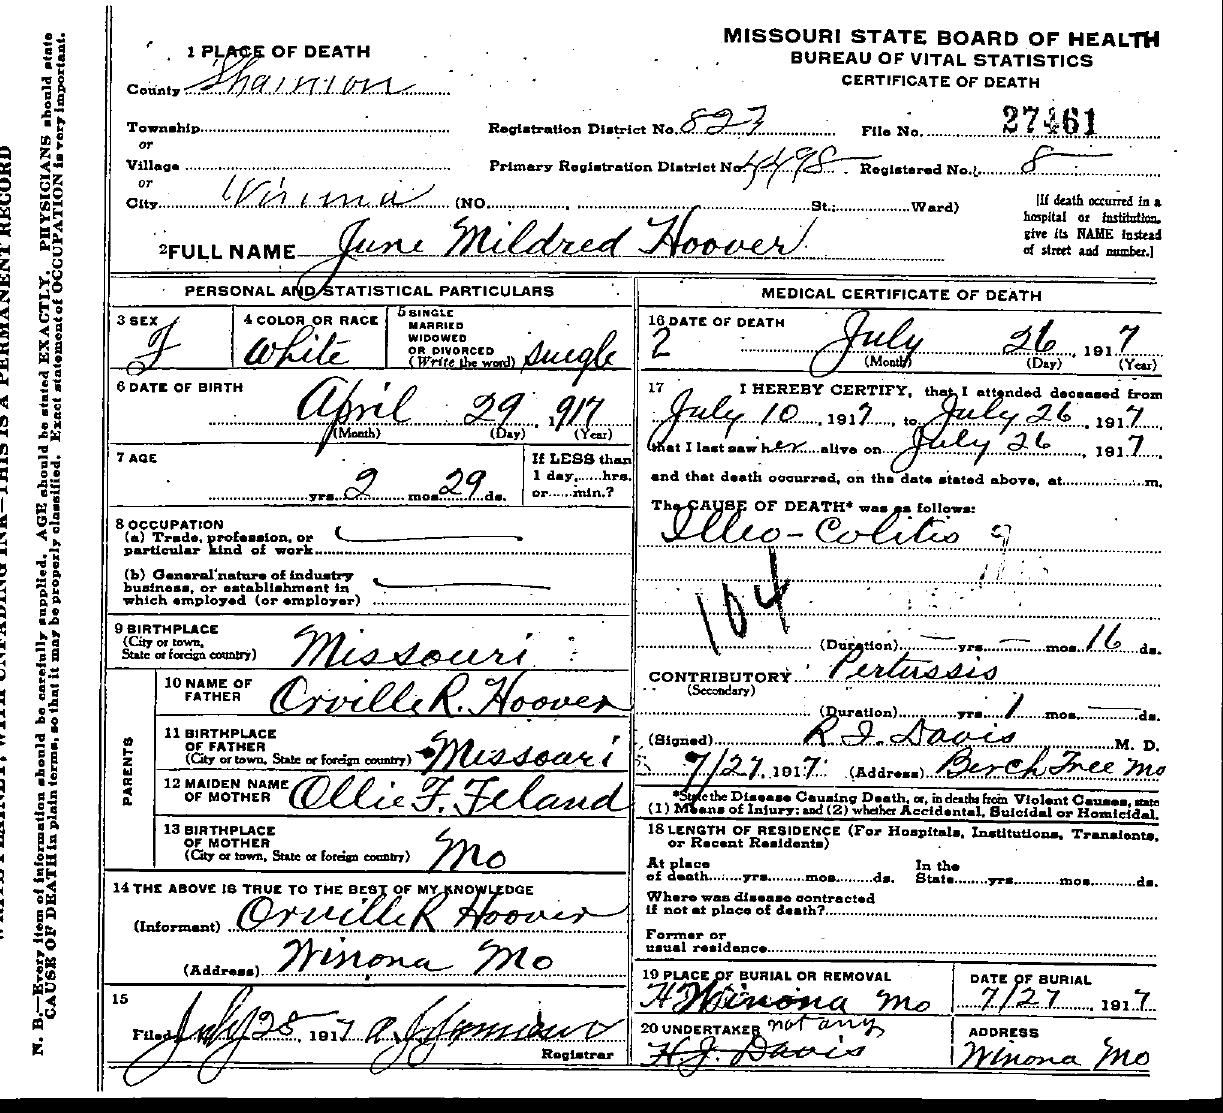 MISSOURI STATE BOARD OF HEALTH
BUREAU OF VITAL STATISTICS
CERTIFICATE OF DEATH
1 PLACE OF DEATH
County Shannon
Township
or
Village
or
City Winona (NO. , St.; Ward)
Registration District No. 827 File No. 27461
Primary Registration District No. 4498 Registered No. 8
[If death occurred in a
hospital or institution,
give its NAME instead
of street and number.]
2 FULL NAME June Mildred Hoover
PERSONAL AND STATISTICAL PARTICULARS
3 SEX F
4 COLOR OR RACE White
5 SINGLE
MARRIED
WIDOWED
OR DIVORCED
(Write the word) single
6 DATE OF BIRTH
April 29, 1917
(Month) (Day) (Year)
7 AGE
yrs. 2 mos. 29 ds.
If LESS than
1 day, hrs.
or min.?
8 OCCUPATION
(a) Trade, profession, or
particular kind of work
(b) General nature of industry
business, or establishment in
which employed (or employer)
9 BIRTHPLACE
(City or town,
State or foreign country) Missouri
PARENTS
10 NAME OF
FATHER Orville R. Hoover
11 BIRTHPLACE
OF FATHER
(City or town, State or foreign country) Missouri
12 MAIDEN NAME
OF MOTHER Ollie F. Feland
13 BIRTHPLACE
OF MOTHER
(City or town, State or foreign country) Mo
14 THE ABOVE IS TRUE TO THE BEST OF MY KNOWLEDGE
(Informant) Orville R Hoover
(Address) Winona Mo
15
Filed July 28, 1917
Registrar
MEDICAL CERTIFICATE OF DEATH
16 DATE OF DEATH
2 July 26, 1917
(Month) (Day) (Year)
17 I HEREBY CERTIFY, that I attended deceased from
July 10, 1917, to July 26, 1917
that I last saw her alive on July 26, 1917,
and that death occurred, on the date stated above, at m.
The CAUSE OF DEATH* was as follows:
Illeo-Colitis
104
(Duration) yrs. mos. 16 ds.
CONTRIBUTORY Pertussis
(Secondary)
(Duration) yrs. 1 mos. ds.
(Signed) R. I. Davis M. D.
7/27, 1917 (Address) Berch Tree Mo
*State the Disease Causing Death, or, in deaths from Violent Causes, state
(1) Means of Injury; and (2) whether Accidental, Suicidal or Homicidal.
18 LENGTH OF RESIDENCE (For Hospitals, Institutions, Transients,
or Recent Residents)
At place
of death yrs. mos. ds.
In the
State yrs. mos. ds.
Where was disease contracted
if not at place of death?
Former or
usual residence
19 PLACE OF BURIAL OR REMOVAL
Winona Mo
DATE OF BURIAL
7/27 1917
20 UNDERTAKER not any
H. J. Davis
ADDRESS
Winona Mo
N. B.—Every item of information should be carefully supplied. AGE should be stated EXACTLY. PHYSICIANS should state
CAUSE OF DEATH in plain terms, so that it may be properly classified. Exact statement of OCCUPATION is very important.